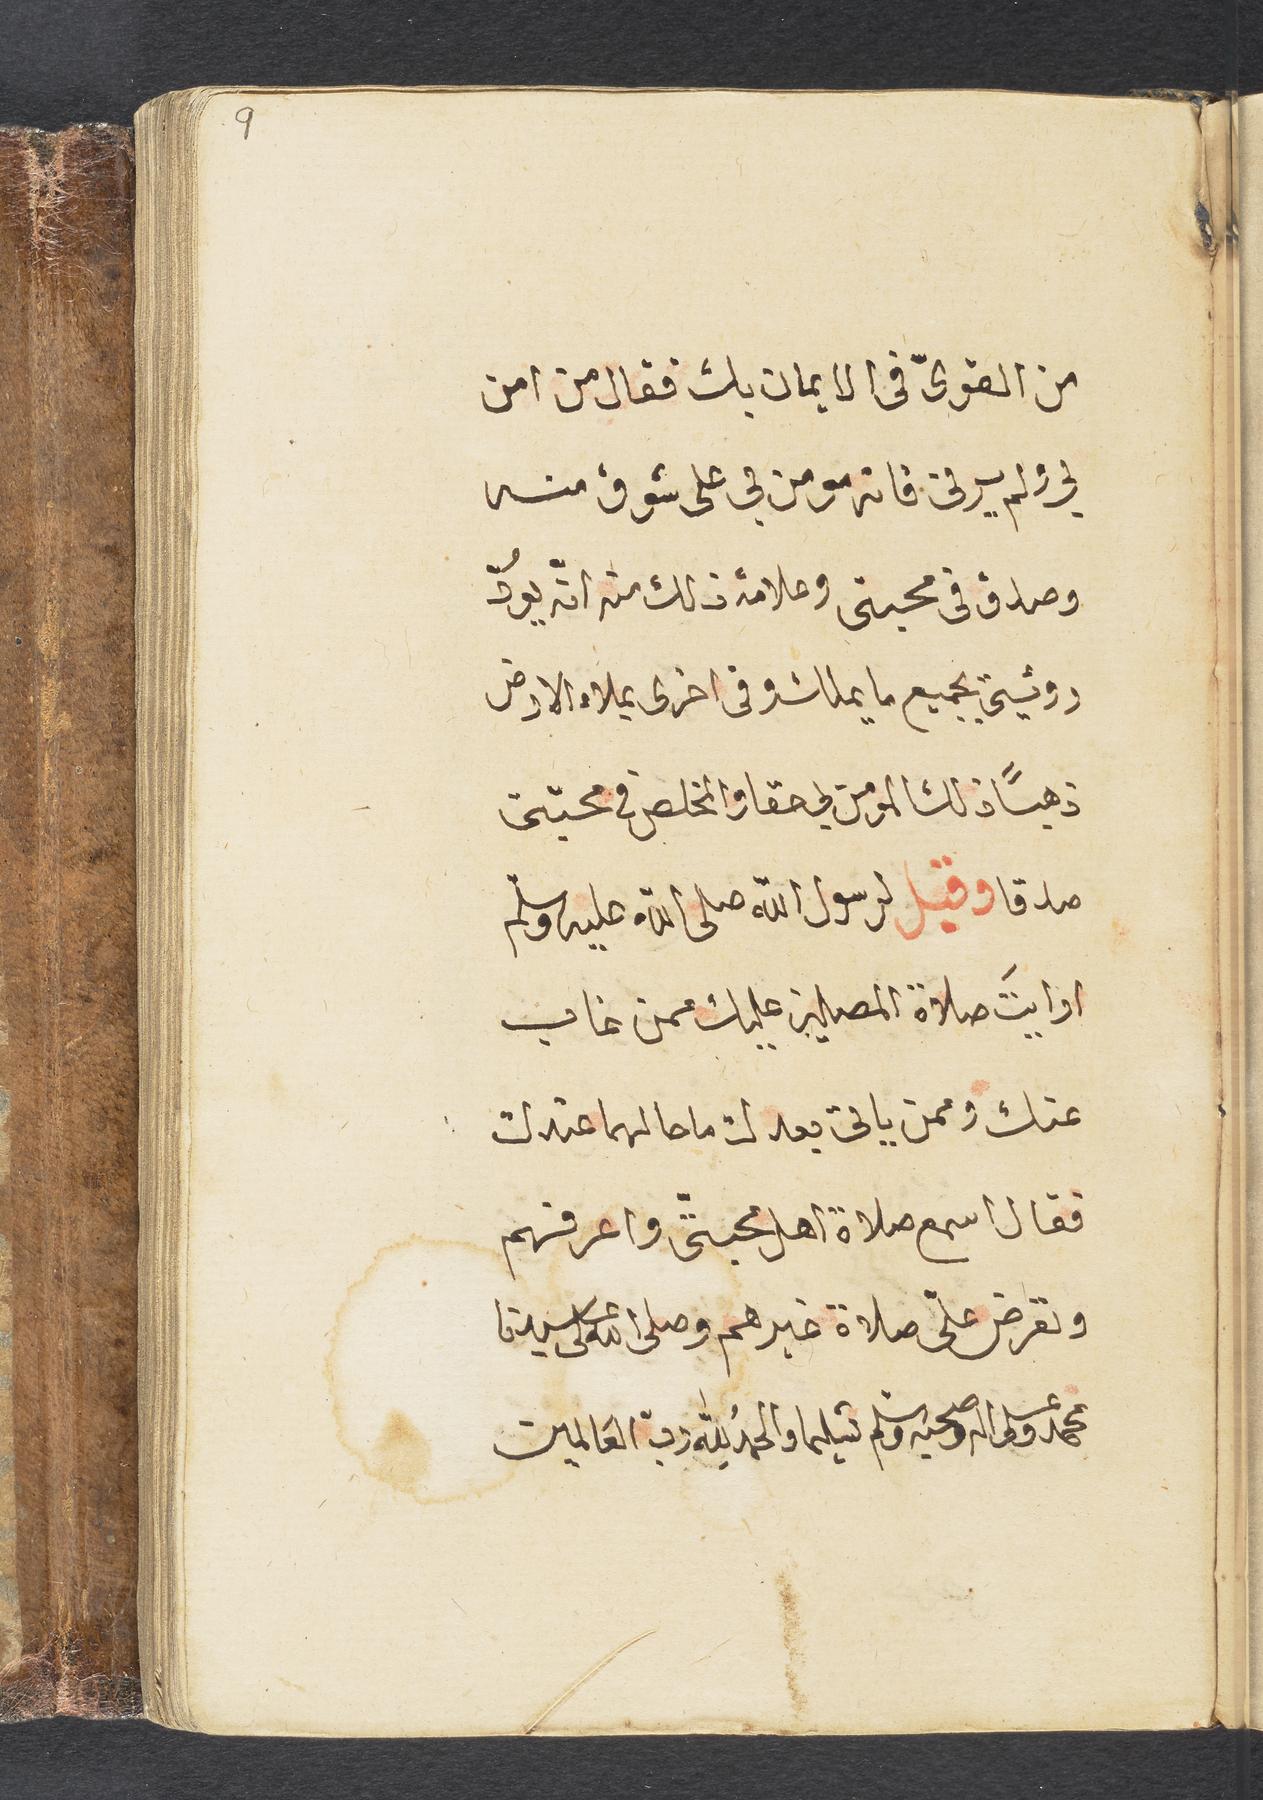 9
من القوىّ فى الايمان بك فقال من امن
بي ولم يرنى فانه مومن بى على شوق منه
وصدق فى محبتى وعلامة ذلك منه انّه يودُّ
روئيتى بجميع ما يملك وفى اخرى بملاء الارض
ذهبًا ذلك المومن بى حقا والمخلص فى محبّتى
صدقا وقيل لرسول اللّه صلى اللّه عليه وسلّم
ارايتَ صلاة المصلين عليك ممن غاب
عنك وممن ياتى بعدك ما حالهما عندك
فقال اسمع صلاة اهل محبتىّ واعرفهم
وتعرض علىّ صلاة غيرهم وصلى اللّه على سيدنا
محمد وعلى اله وصحبه وسلّم تسليما والحمدُ للّه ربّ العالمين